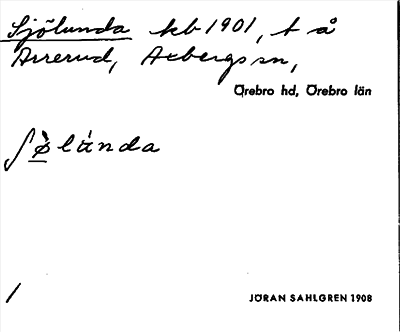 Sjölunda kb 1901, t å
Arrerud, Axbergs sn,
Örebro hd, Örebro län
ʃø̀lúnda
/
JÖRAN SAHLGREN 1908